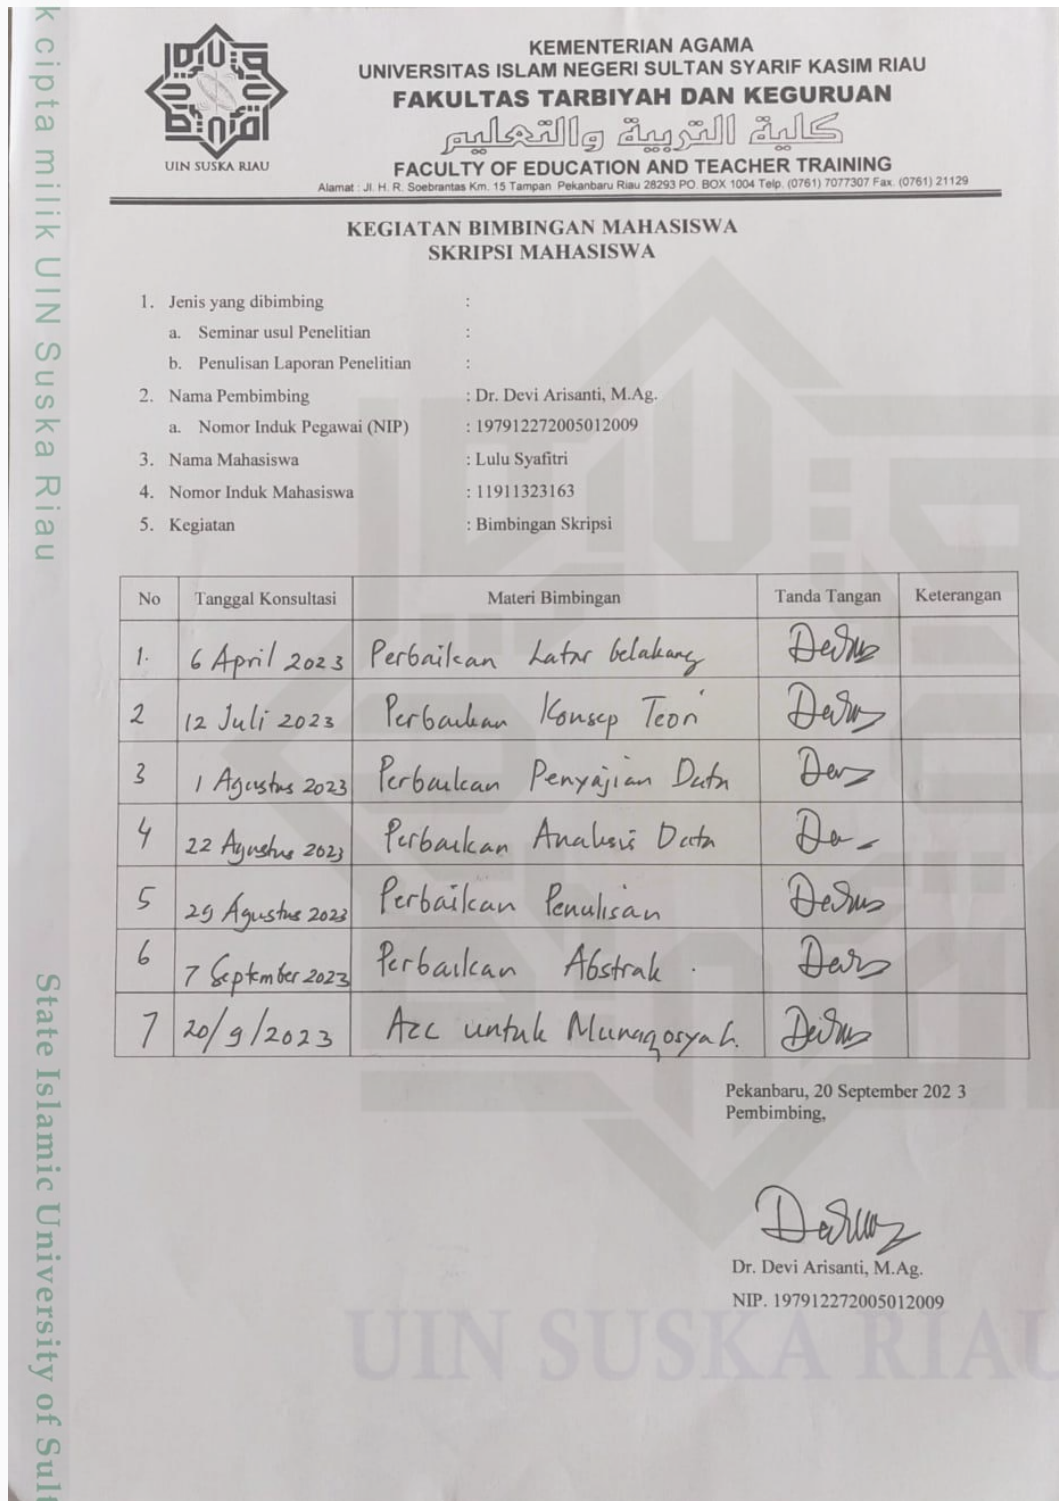 k cipta milik UIN Suska Riau
State Islamic University of Sult
UIN SUSKA RIAU
KEMENTERIAN AGAMA
UNIVERSITAS ISLAM NEGERI SULTAN SYARIF KASIM RIAU
FAKULTAS TARBIYAH DAN KEGURUAN
كلية التربية والتعليم
FACULTY OF EDUCATION AND TEACHER TRAINING
Alamat : Jl. H. R. Soebrantas Km. 15 Tampan Pekanbaru Riau 28293 PO. BOX 1004 Telp. (0761) 7077307 Fax. (0761) 21129
KEGIATAN BIMBINGAN MAHASISWA
SKRIPSI MAHASISWA
1. Jenis yang dibimbing :
a. Seminar usul Penelitian :
b. Penulisan Laporan Penelitian :
2. Nama Pembimbing : Dr. Devi Arisanti, M.Ag.
a. Nomor Induk Pegawai (NIP) : 197912272005012009
3. Nama Mahasiswa : Lulu Syafitri
4. Nomor Induk Mahasiswa : 11911323163
5. Kegiatan : Bimbingan Skripsi
No Tanggal Konsultasi Materi Bimbingan Tanda Tangan Keterangan
1. 6 April 2023 Perbaikan Latar belakang
2 12 Juli 2023 Perbaikan Konsep Teori
3 1 Agustus 2023 Perbaikan Penyajian Data
4 22 Agustus 2023 Perbaikan Analisis Data
5 29 Agustus 2023 Perbaikan Penulisan
6 7 September 2023 Perbaikan Abstrak.
7 20/9/2023 Acc untuk Munaqosyah.
Pekanbaru, 20 September 202 3
Pembimbing,
Dr. Devi Arisanti, M.Ag.
NIP. 197912272005012009
UIN SUSKA RIAU